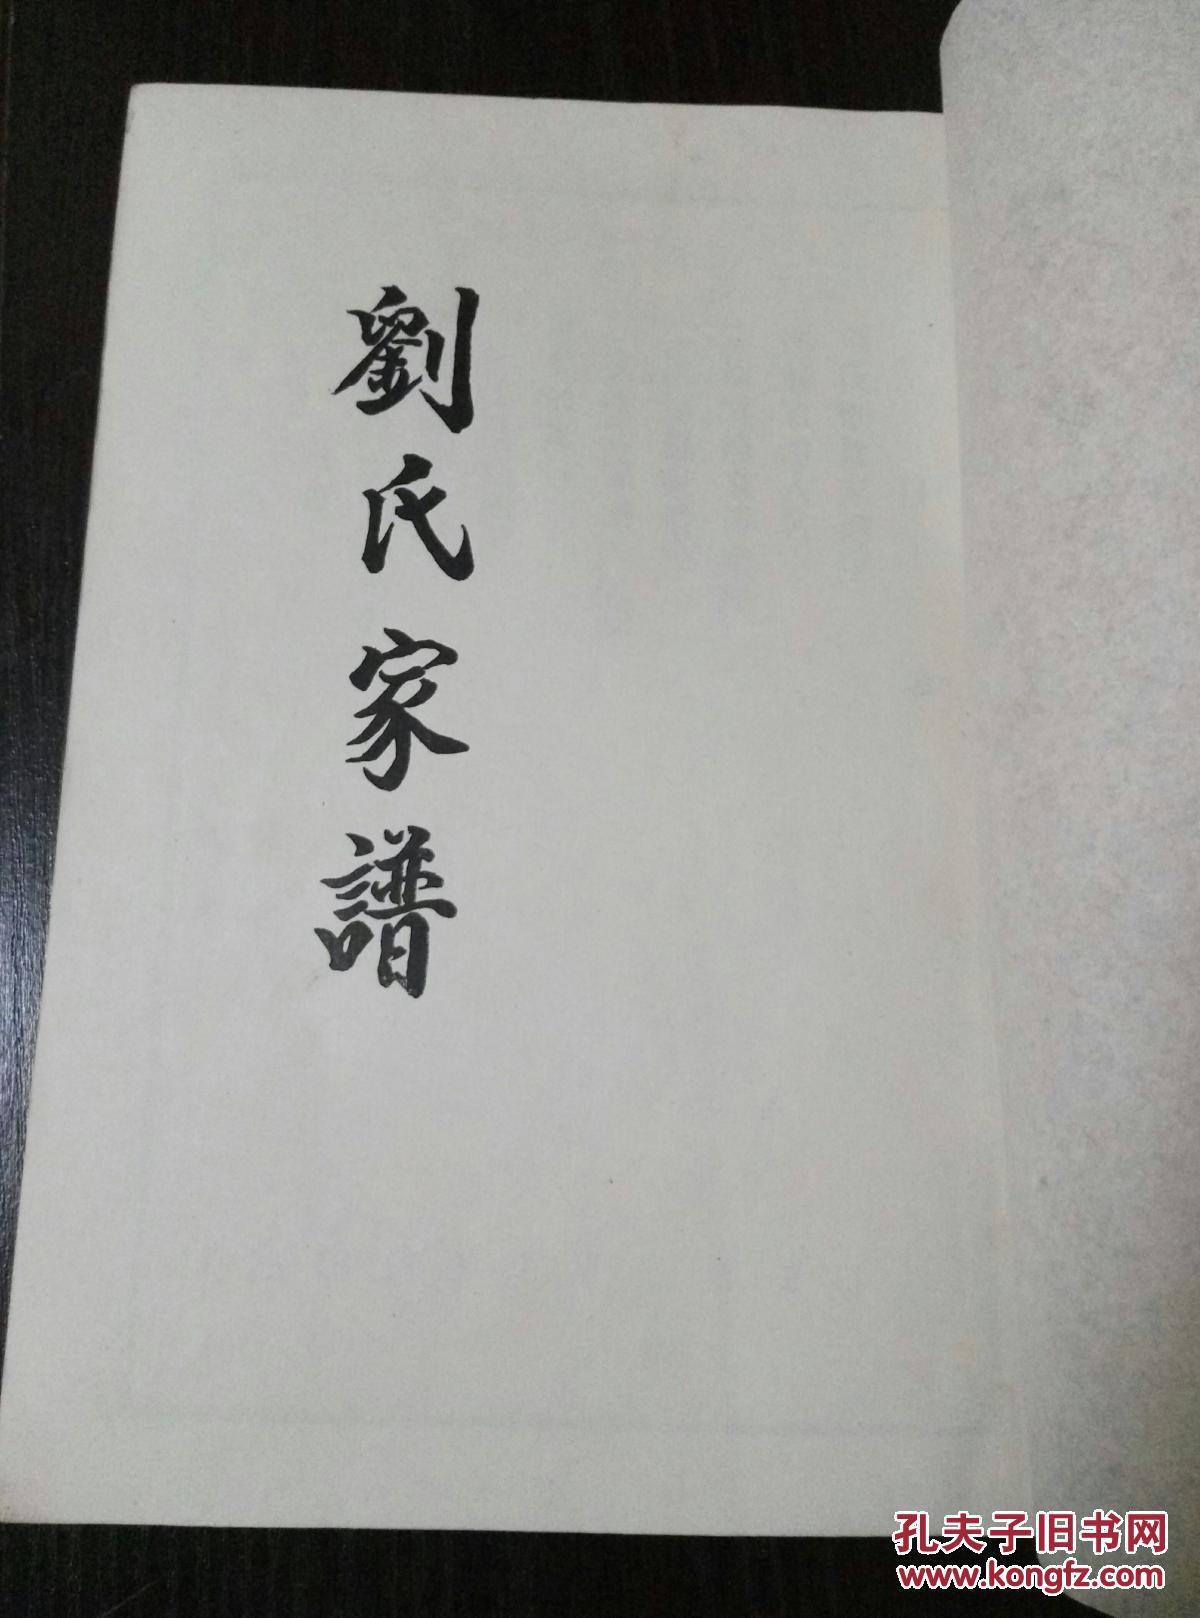 劉氏家譜
孔夫子旧书网
www.kongfz.com